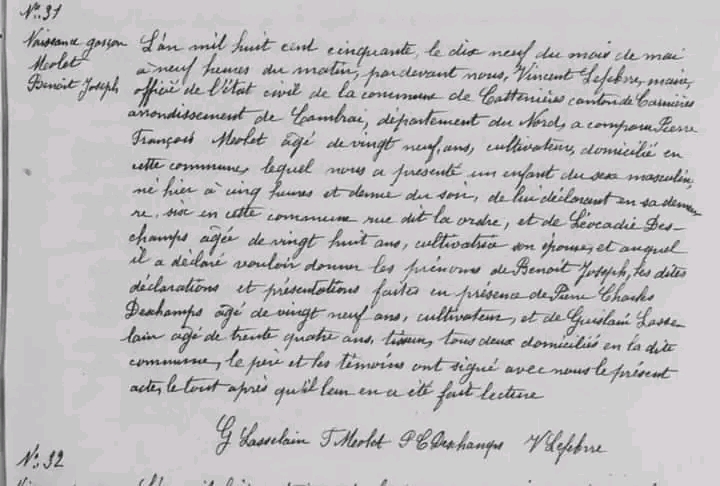 No. 31
Naissance garçon
Meolet
Benoit Joseph
L'an mil huit cent cinquante, le dix neuf du mois de mai
à neuf heures du matin, pardevant nous, Vincent Lefebvre, maire,
officié de l'état civil de la commune de Cattenières canton de Carnières
arrondissement de Cambrai, département du Nord, a comparu Pierre
François Meolet âgé de vingt neuf, ans, cultivateur, domicilié en
cette commune, lequel nous a présenté un enfant du sexe masculin,
né hier à cinq heures et demie du soir, de lui déclarant en sa demeu
re, sise en cette commune rue dit la ordre, et de Léocadie Des-
champs âgée de vingt huit ans, cultivatrice son épouse, et auquel
il a déclaré vouloir donner les prénoms de Benoit Joseph, les dites
déclarations et présentations faites en présence de Pierre Charles
Deschamps âgé de vingt neuf ans, cultivateur, et de Guislain Lasse-
lain âgé de trente quatre ans, tisseur, tous deux domiciliés en la dite
commune, le père et les témoins ont signé avec nous le présent
acte, le tout après qu'il leur en a été fait lecture
G Lasselain F Meolet P C Deschamps V Lefebvre
No. 32